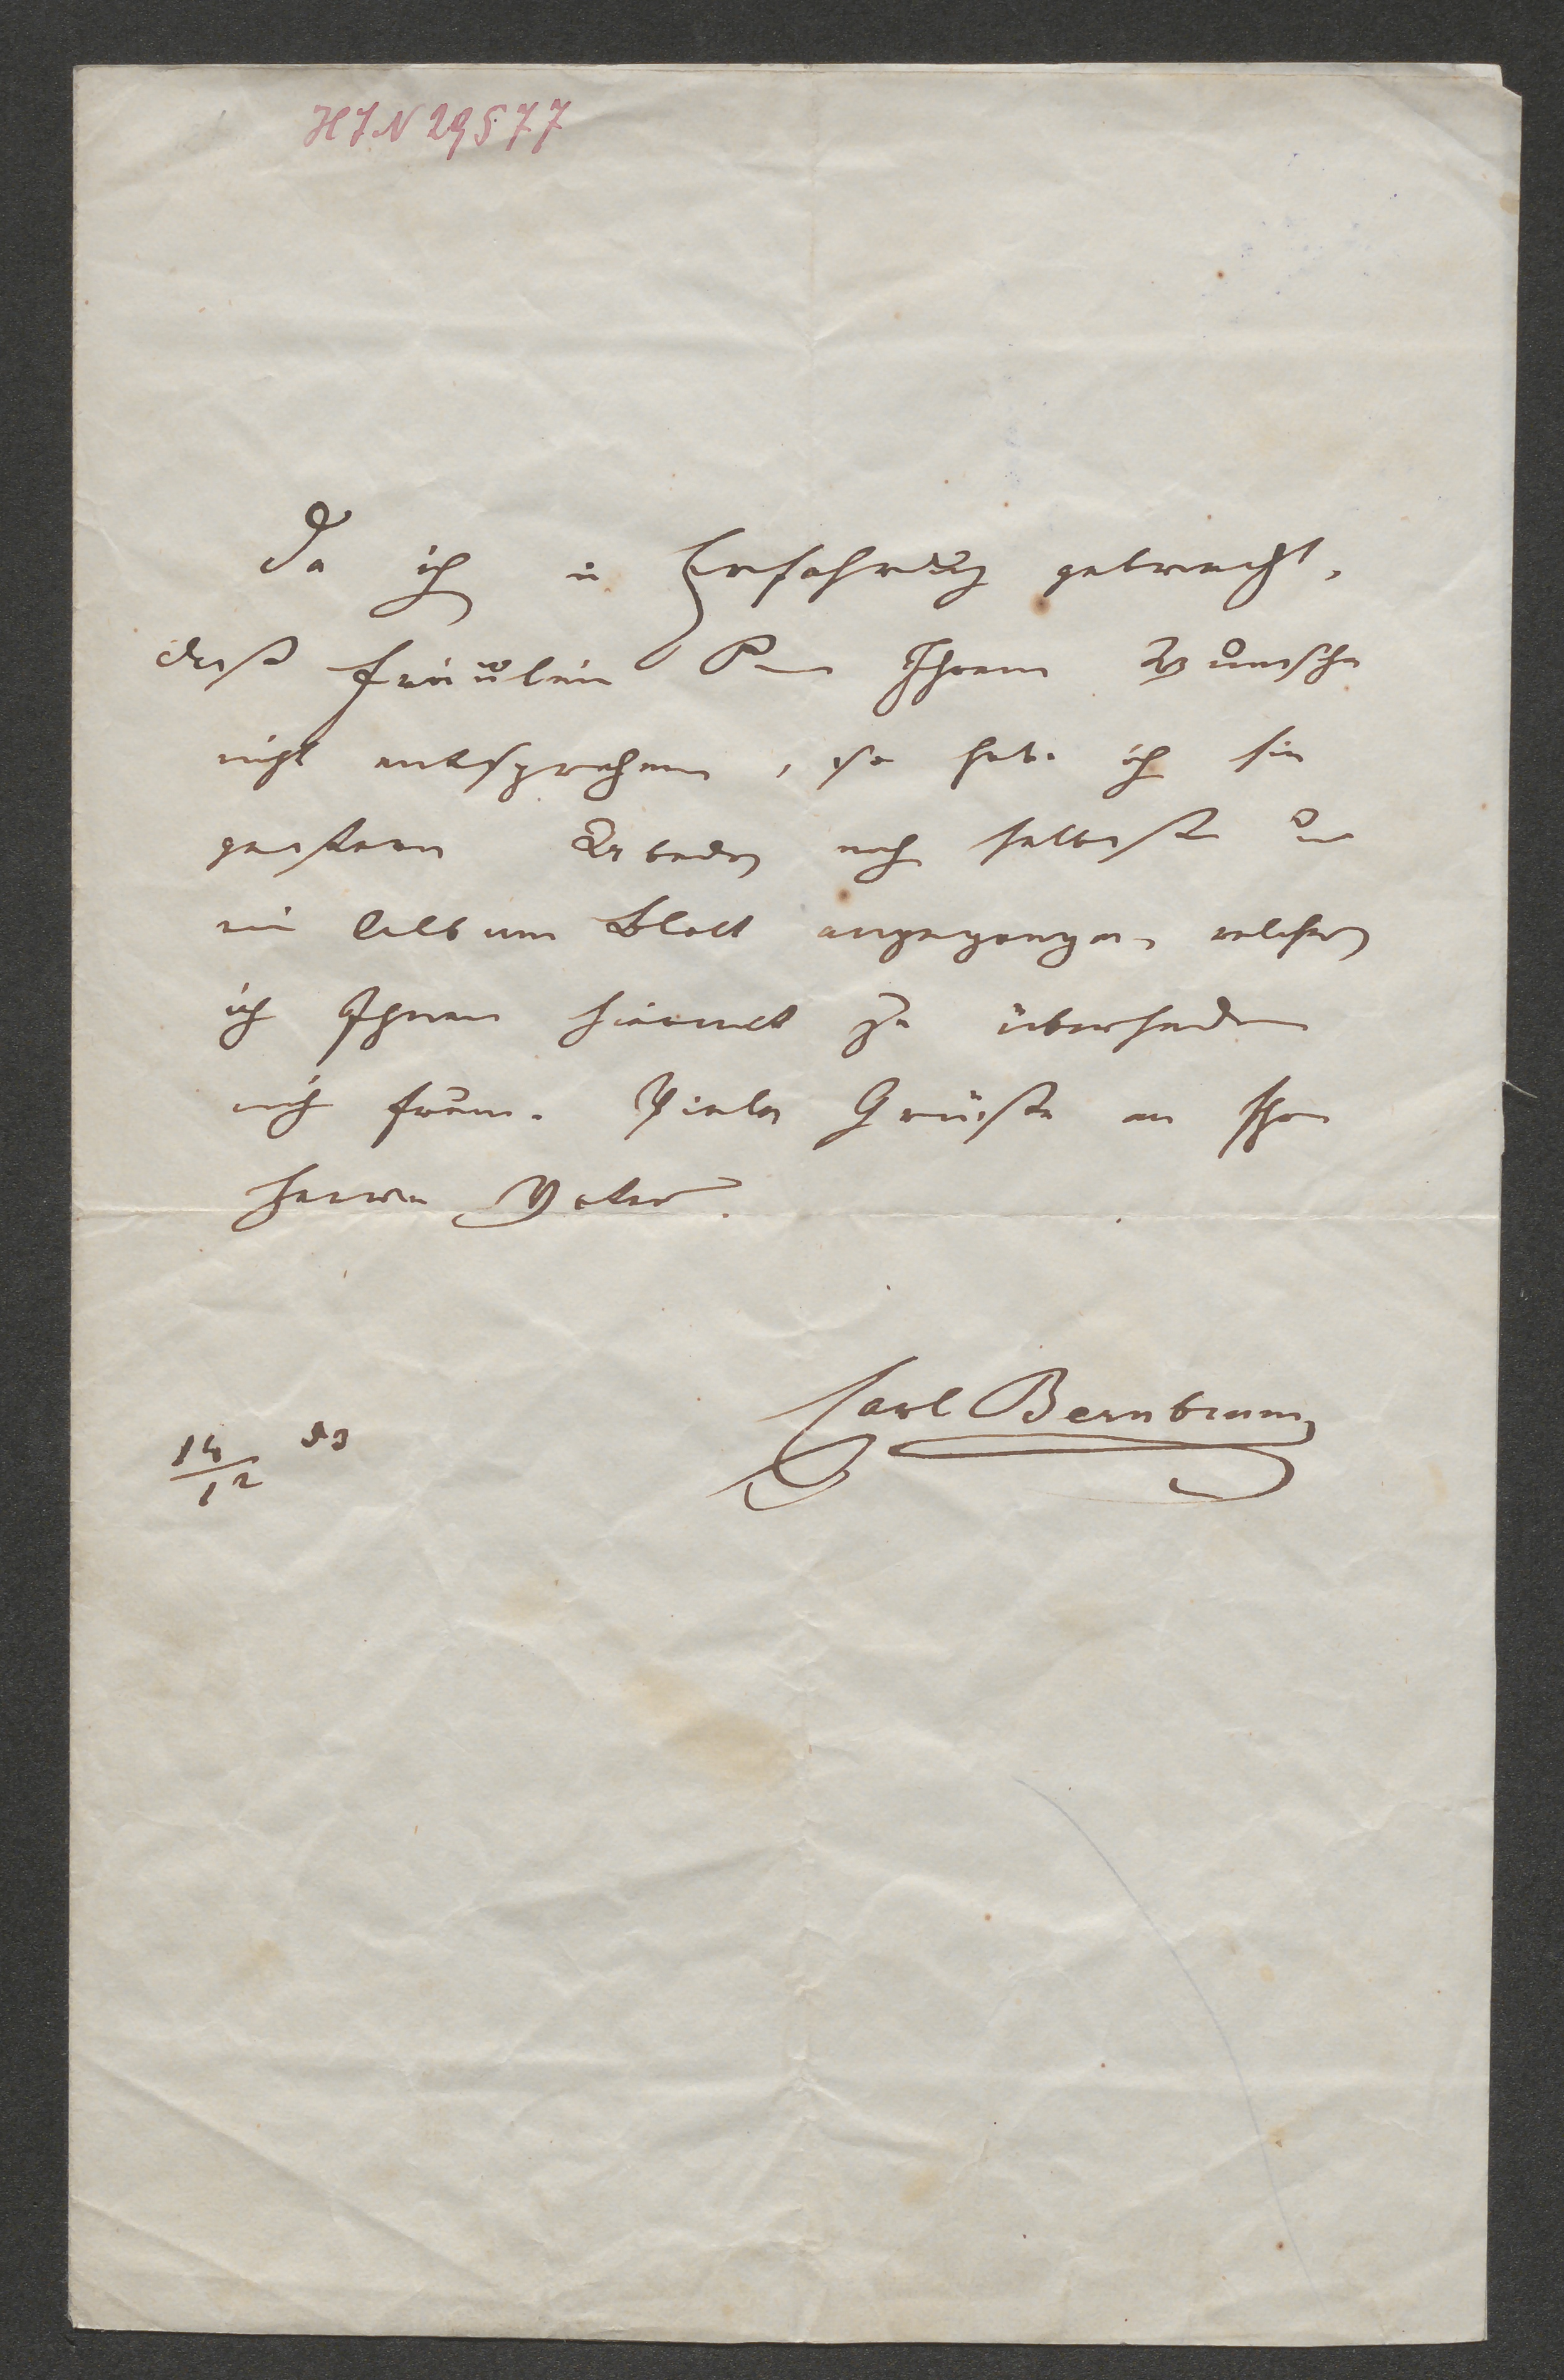 HIN 29577
Da ich in Erfahrung gebracht,
daß Fräulein P Ihrem Wunsche
nicht entsprochen, so habe ich sie
gestern Abends noch selbst um
ein Album Blatt angegangen, welches
ich Ihnen hiermit zu übersenden
mich freue. Viele Grüße an Ihren
Herrn Vater.
Carl Bernbrunn
14/12 53